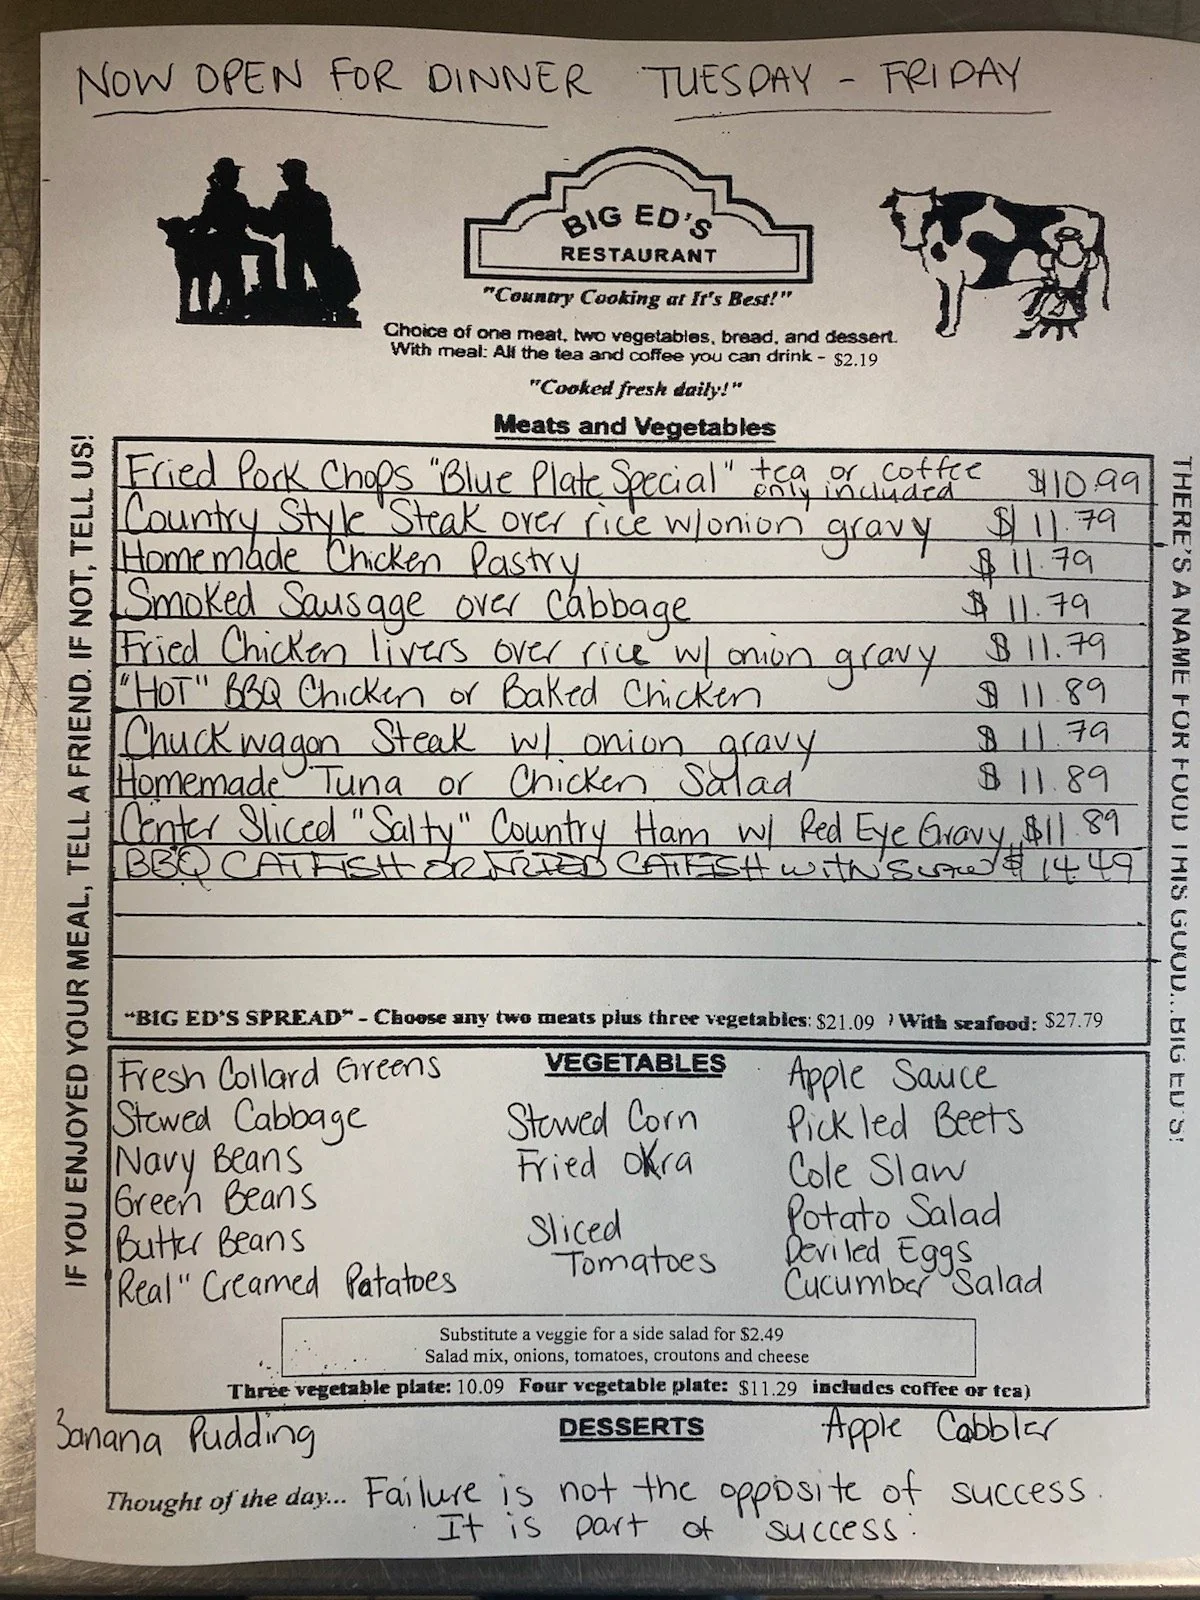 NOW OPEN FOR DINNER TUESDAY - FRIDAY
BIG ED'S
RESTAURANT
"Country Cooking at It's Best!"
Choice of one meat, two vegetables, bread, and dessert.
With meal: All the tea and coffee you can drink - $2.19
"Cooked fresh daily!"
Meats and Vegetables
Fried Pork Chops "Blue Plate Special" tea or coffee only included $10.99
Country Style Steak over rice w/onion gravy $11.79
Homemade Chicken Pastry $11.79
Smoked Sausage over Cabbage $11.79
Fried Chicken livers over rice w/ onion gravy $11.79
"HOT" BBQ Chicken or Baked Chicken $11.89
Chuckwagon Steak w/ onion gravy $11.79
Homemade Tuna or Chicken Salad $11.89
Center Sliced "Salty" Country Ham w/ Red Eye Gravy $11.89
BBQ CATFISH OR FRIED CATFISH WITH $14.49
"BIG ED'S SPREAD" - Choose any two meats plus three vegetables: $21.09 With seafood: $27.79
IF YOU ENJOYED YOUR MEAL, TELL A FRIEND. IF NOT, TELL US!
THERE'S A NAME FOR FOOD THIS GOOD...BIG ED'S!
VEGETABLES
Fresh Collard Greens
Stewed Cabbage
Navy Beans
Green Beans
Butter Beans
Real" Creamed Potatoes
Stewed Corn
Fried Okra
Sliced
Tomatoes
Apple Sauce
Pickled Beets
Cole Slaw
Potato Salad
Deviled Eggs
Cucumber Salad
Substitute a veggie for a side salad for $2.49
Salad mix, onions, tomatoes, croutons and cheese
Three vegetable plate: 10.09 Four vegetable plate: $11.29 includes coffee or tea)
DESSERTS
Banana Pudding
Apple Cobbler
Thought of the day... Failure is not the opposite of success.
It is part of success.